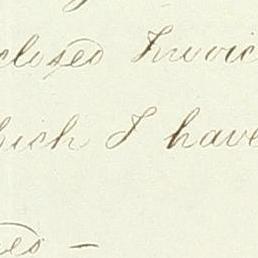 closed Invoic
hich I have
es –